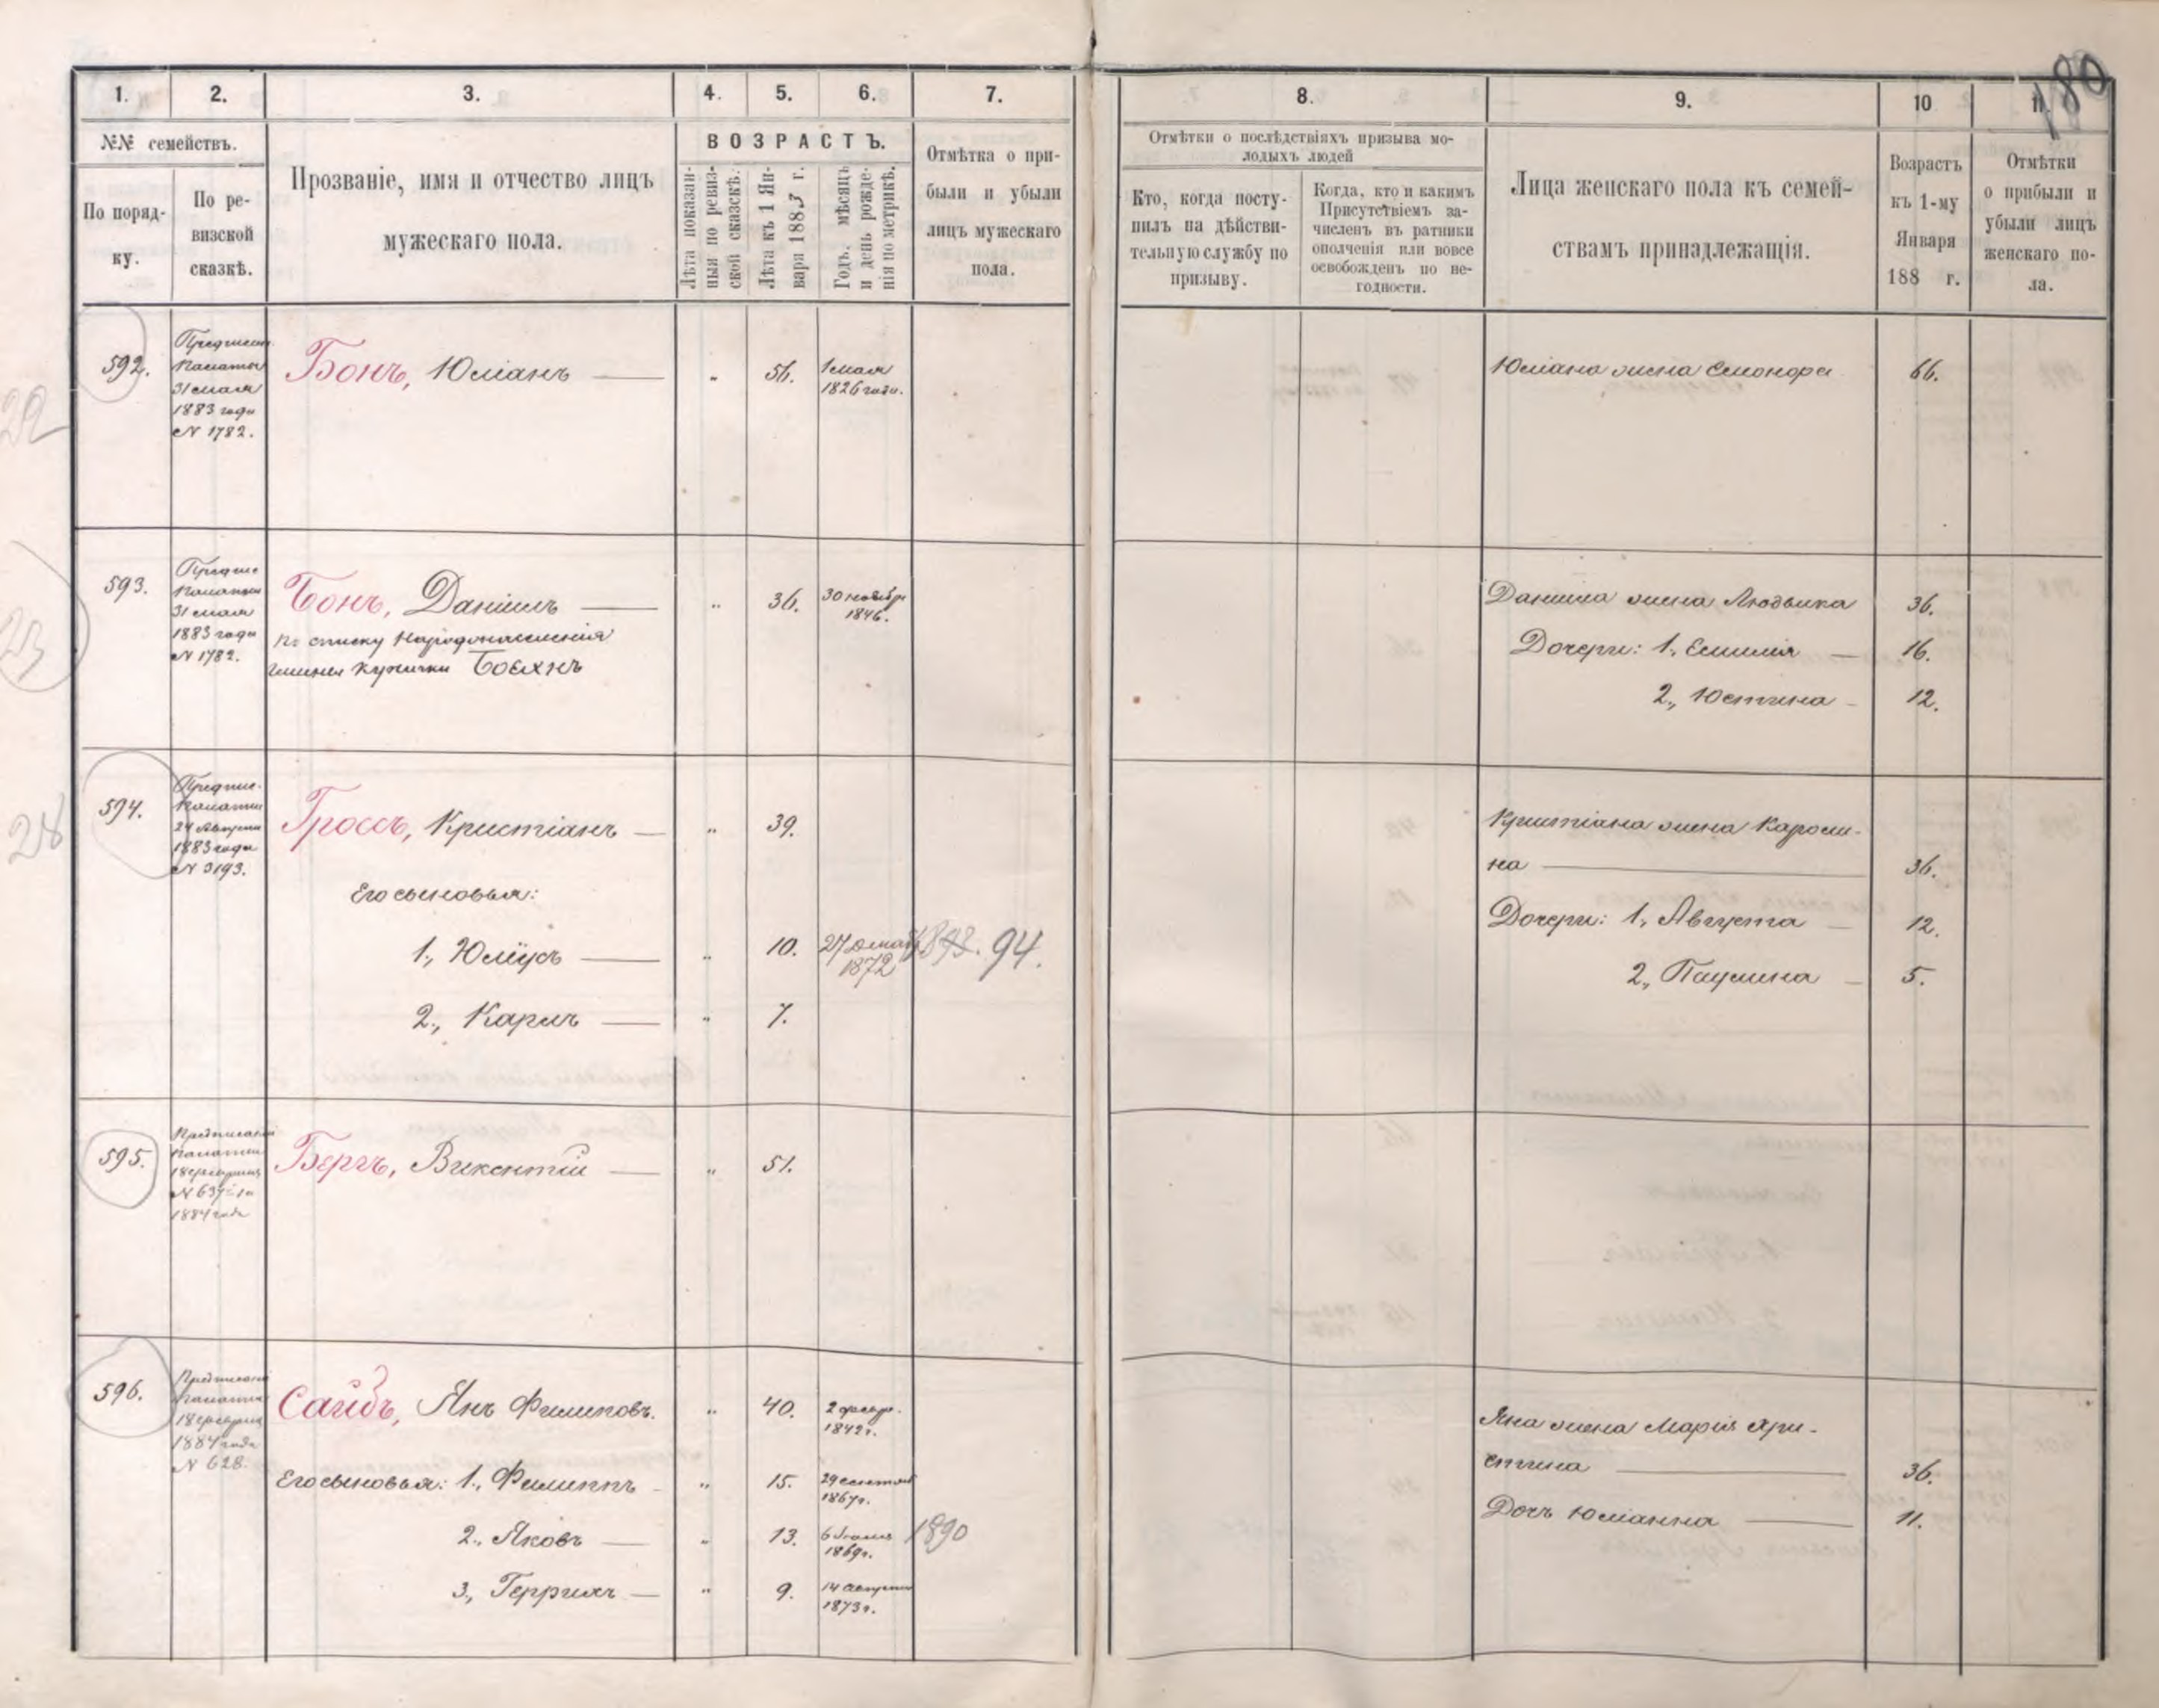 180
1. 2. 3. 4. 5. 6. 7.
№№ семействъ.
По поряд-
ку.
По ре-
визской
сказкѣ.
Прозваніе, имя и отчество лицъ
мужескаго пола.
ВОЗРАСТЪ.
Лѣта показан-
ныя по ревиз-
ской сказскѣ.
Лѣта къ 1 Ян-
варя 1883 г.
Годъ, мѣсяцъ
и день рожде-
нія по метрикѣ.
Отмѣтка о при-
были и убыли
лицъ мужескаго
пола.
8. 9. 10 11
Отмѣтки о послѣдствіяхъ призыва мо-
лодыхъ людей
Кто, когда посту-
пилъ на дѣйстви-
тельную службу по
призыву.
Когда, кто и какимъ
Присутствіемъ за-
численъ въ ратники
ополченія или вовсе
освобожденъ по не-
годности.
Лица женскаго пола къ семей-
ствамъ принадлежащія.
Возрастъ
къ 1-му
Января
188 г.
Отмѣтки
о прибыли и
убыли лицъ
женскаго по-
ла.
22
592.
Палаты
31 мая
1883 года
№ 1782.
Бонъ, Юліанъ — „ 56. 1 мая
1826 года.
Юліана жена Елеонора 66.
23
593.
Предпис
Палаты
31 мая
1883 года
№ 1782.
Бонъ, Даніилъ — „ 36. 30 ноября
1846.
По списку Народонаселенія
гмины Кужички Боехнъ
Даніила жена Людвика 36.
Дочери: 1., Емилія — 16.
2., Юстина - 12.
28
594.
Предпис.
Палаты
1883 года
№ 3193.
Гроссъ, Кристіанъ — „ 39.
Его сыновья:
1., Юліусъ — „ 10. 27 Декаб
1872
1893. 94.
2., Карлъ — „ 7.
Кристіана жена Кароли-
на — 36.
Дочери: 1., Августа — 12.
2., Паулина — 5.
595.
Предписаніе
Палаты
18 февраля
№ 637
1884 года
Бергъ, Викентій — „ 51.
596.
Предписаніе
Палаты
18 февраля
1884 года
№ 628.
Сайбъ, Янъ Филиповъ. „ 40. 2 февр.
1842 г.
Его сыновья: 1., Филиппъ - „ 15. 29 сентяб
1867 г.
2., Яковъ — „ 13. 6 Іюня
1869 г.
1890
3., Геррихъ — „ 9. 14 августа
1873 г.
Яна жена Марія Хри-
стина — 36.
Дочь Юліанна — 11.